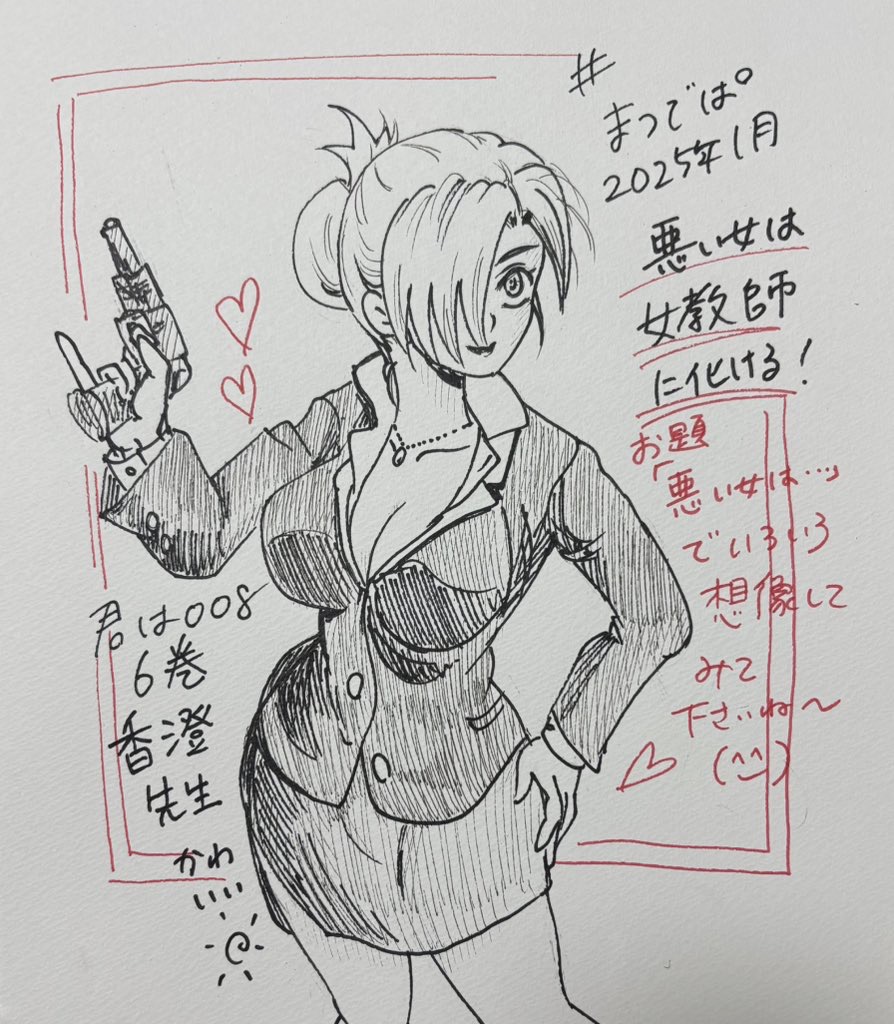 #
まつでは。
2025年1月
悪い女は
女教師
に化ける!
お題
「悪い女は…」
でいろいろ
想像して
みて
下さいね〜
(^^)
君は008
6巻
香澄
先生
かわ
いい